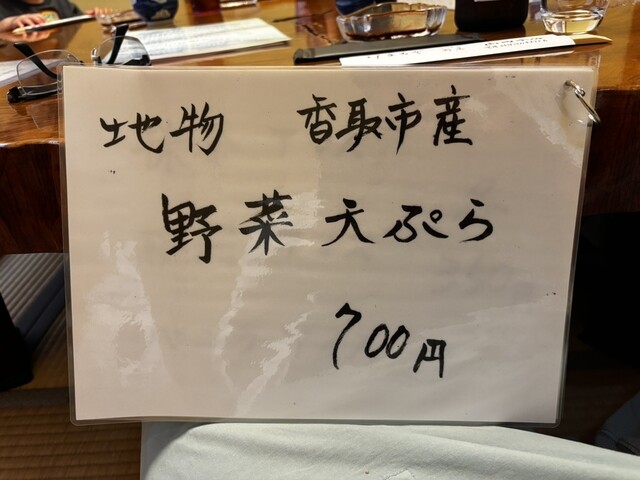 地物 香取市産
野菜天ぷら
700円